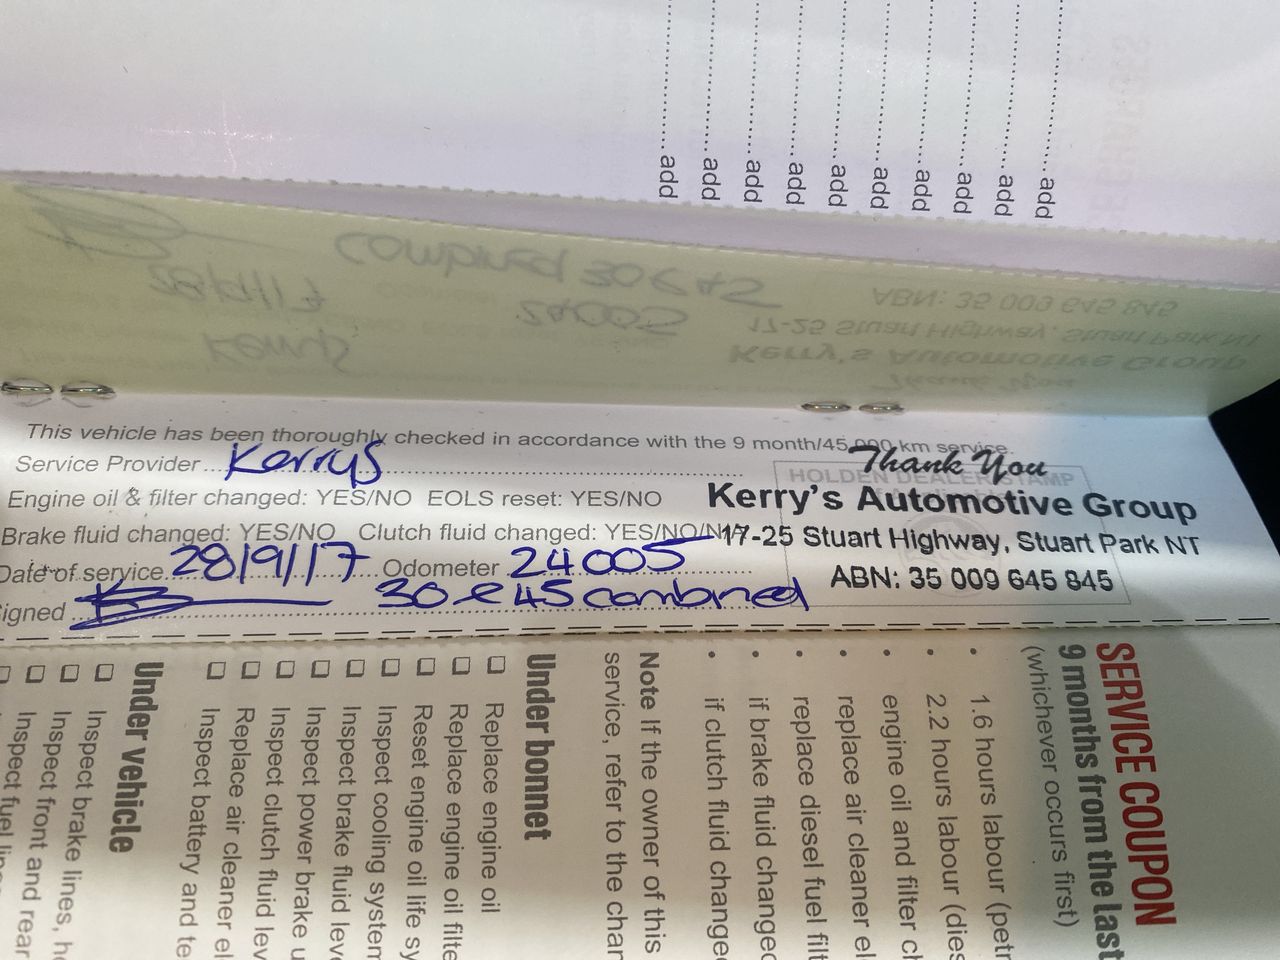 add
add
add
add
add
add
add
add
add
add
This vehicle has been thoroughly checked in accordance with the 9 month/45,000 km service.
Service Provider Kerrys
Engine oil & filter changed: YES/NO EOLS reset: YES/NO
Brake fluid changed: YES/NO Clutch fluid changed: YES/NO/NA
Date of service 28/9/17 Odometer 24005
igned 30 & 45 combined
HOLDEN DEALER STAMP
Thank You
Kerry's Automotive Group
17-25 Stuart Highway, Stuart Park NT
ABN: 35 009 645 845
SERVICE COUPON
9 months from the last
(whichever occurs first)
• 1.6 hours labour (petr
• 2.2 hours labour (dies
• engine oil and filter ch
• replace air cleaner el
• replace diesel fuel filt
• if brake fluid changed
• if clutch fluid change
Note If the owner of this
service, refer to the char
Under bonnet
Replace engine oil
Replace engine oil filte
Reset engine oil life sy
Inspect cooling system
Inspect brake fluid leve
Inspect power brake u
Inspect clutch fluid lev
Replace air cleaner el
Inspect battery and te
Under vehicle
Inspect brake lines, ho
Inspect front and rear
Inspect fuel lin